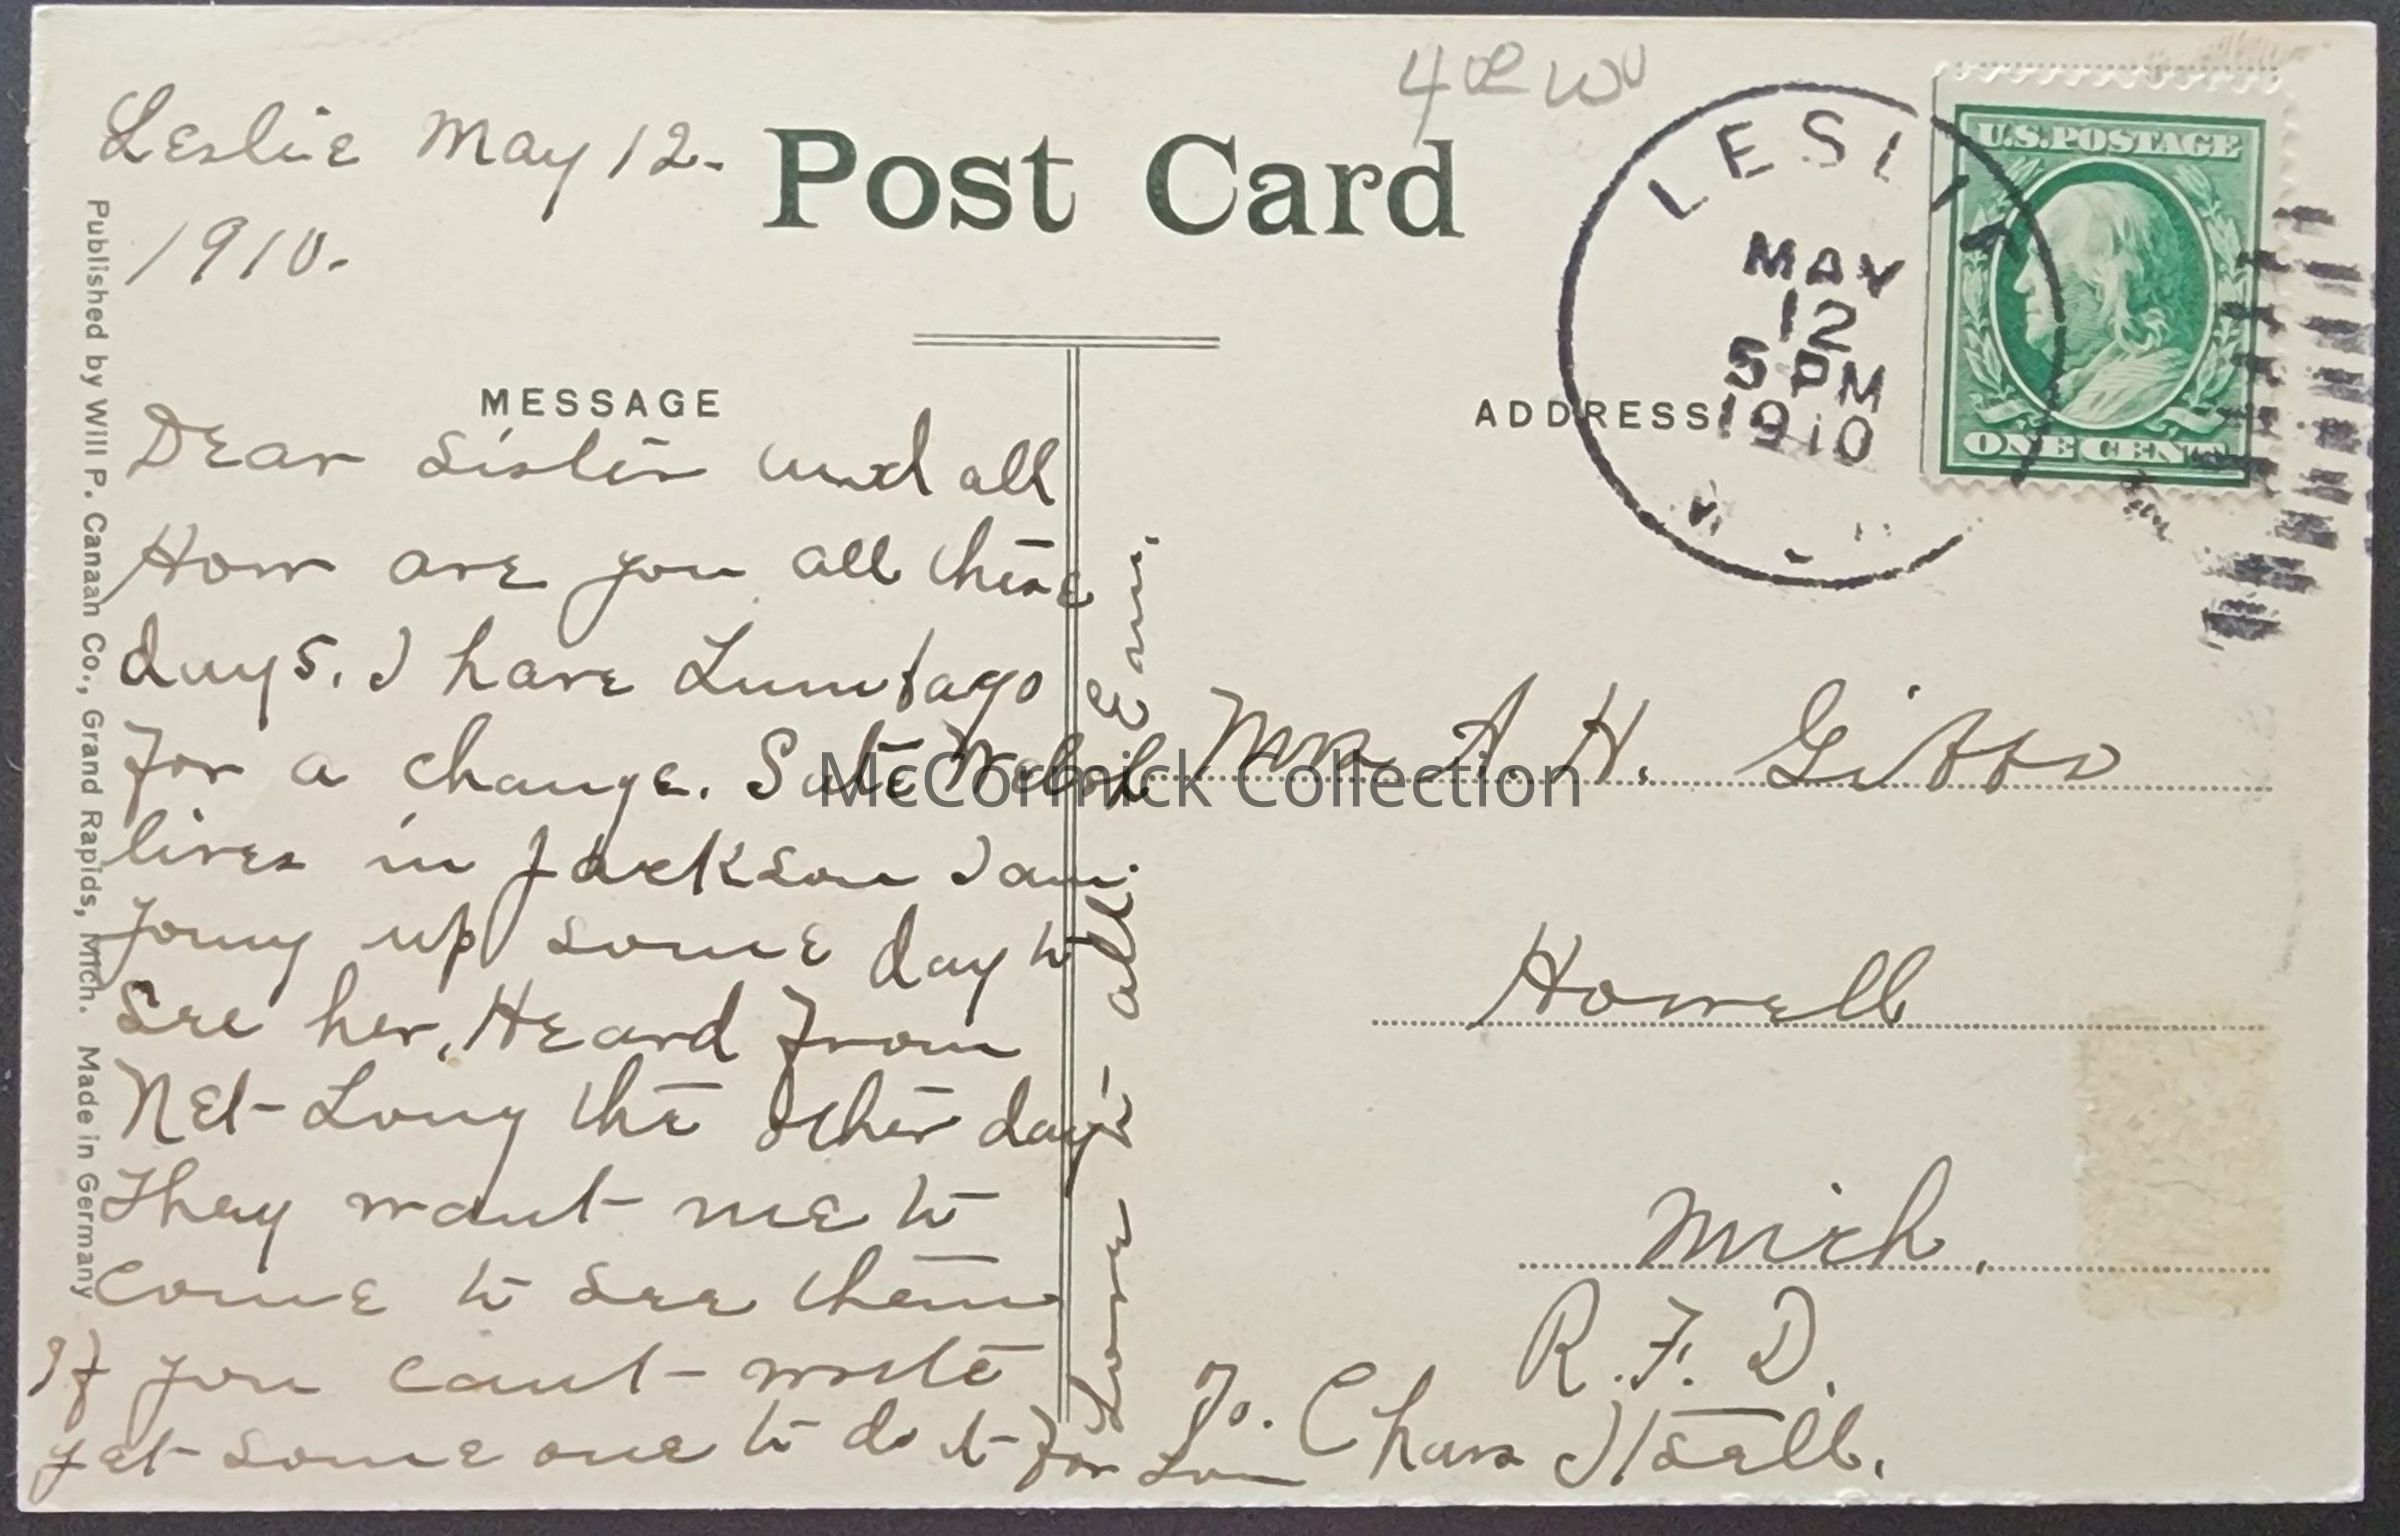 Leslie May 12.
1910.
Post Card
MESSAGE
ADDRESS
Dear Sister and all
How are you all these
days. I have Lumbago
for a change. Welsh
lives in Jackson I am
going up some day to
see her. Heard from
Net Long the other day
They want me to
come to see them
If you cant write
get some one to do it for you
Love to all. Em.
Published by Will P. Canaan Co., Grand Rapids, Mich. Made in Germany
LESLIE
MAY
12
5 PM
1910
U.S. POSTAGE
ONE CENT
Mrs A. H. Gibbs
Howell
Mich.
R. F. D.
To. Chas
McCormick Collection